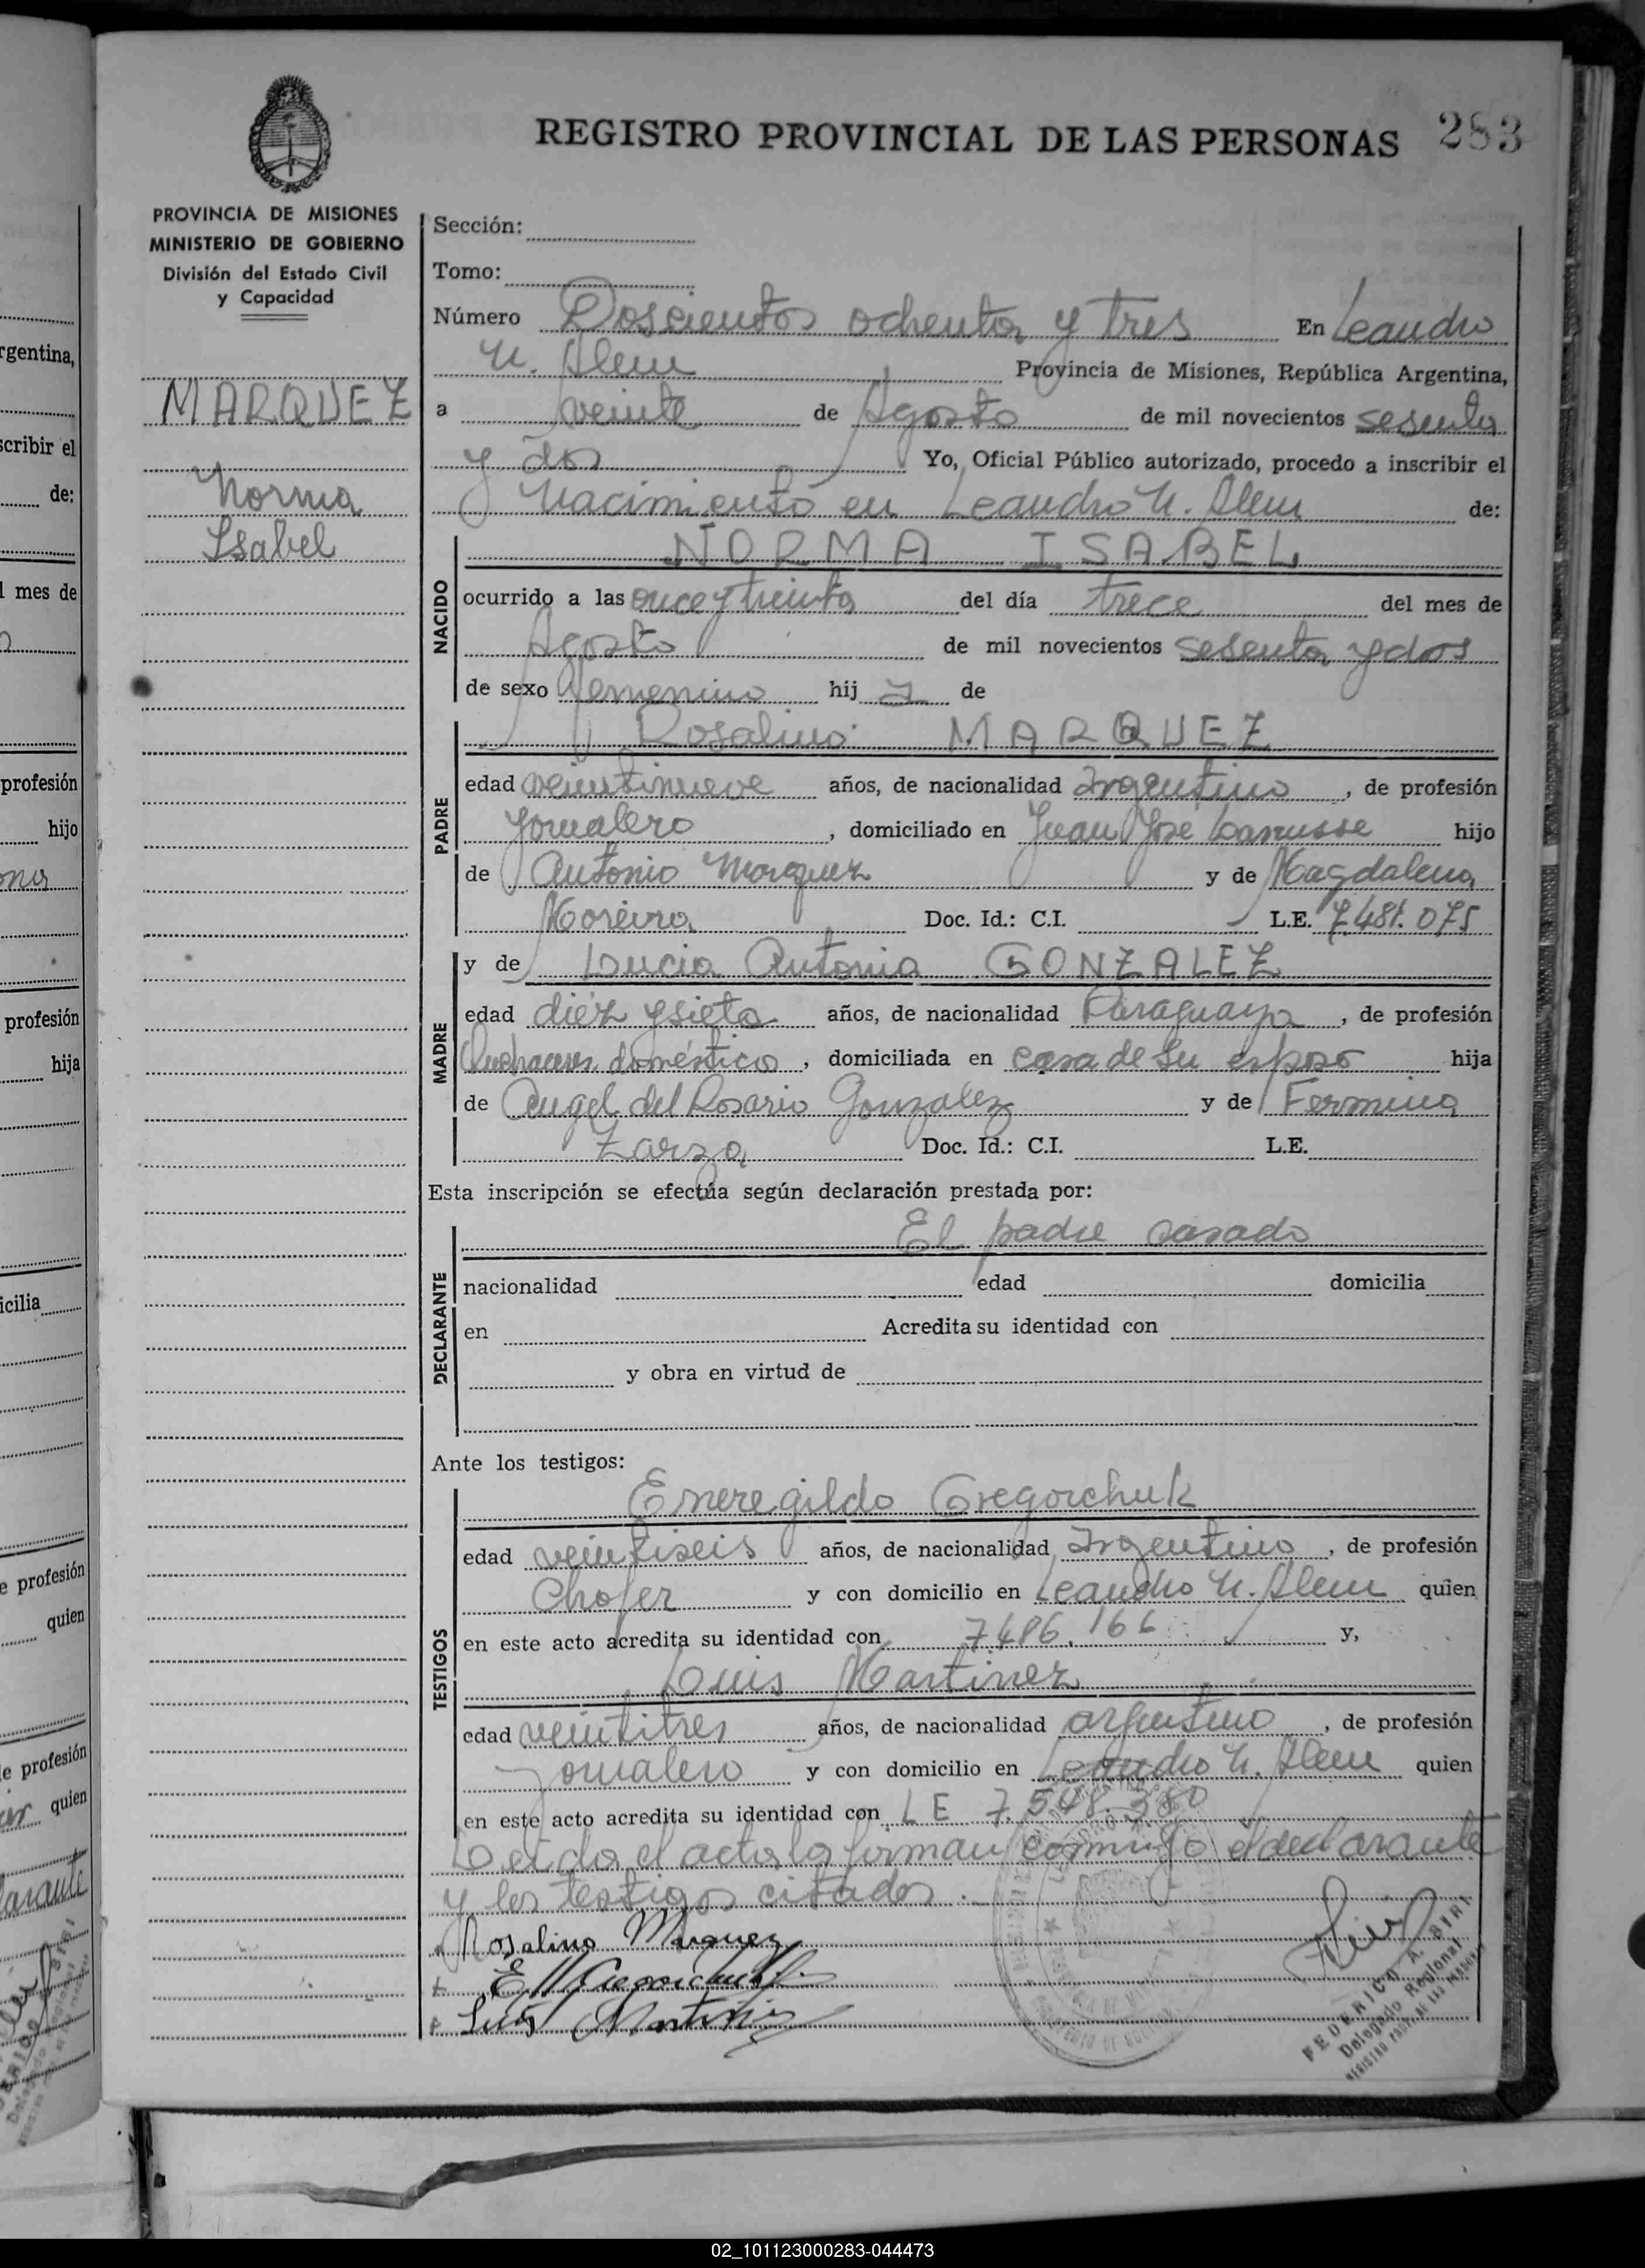 REGISTRO PROVINCIAL DE LAS PERSONAS 283
PROVINCIA DE MISIONES
MINISTERIO DE GOBIERNO
División del Estado Civil
y Capacidad
MARQUEZ
Norma
Isabel
Sección:
Tomo:
Número Doscientos ochenta y tres En Leandro
N. Alem Provincia de Misiones, República Argentina,
a veinte de Agosto de mil novecientos sesenta
y dos Yo, Oficial Público autorizado, procedo a inscribir el
nacimiento en Leandro N. Alem de:
NACIDO
NORMA ISABEL
ocurrido a las once y treinta del día trece del mes de
Agosto de mil novecientos sesenta y dos
de sexo femenino hij a de
PADRE
Rosalino MARQUEZ
edad veintinueve años, de nacionalidad Argentino, de profesión
Jornalero, domiciliado en Juan José Lanusse hijo
de Antonio Marquez y de Magdalena
Moreira Doc. Id.: C.I. L.E. 7.481.075
MADRE
y de Lucia Antonia GONZALEZ
edad diez y siete años, de nacionalidad Paraguaya, de profesión
Quehaceres doméstico, domiciliada en casa de su esposo hija
de Angel del Rosario Gonzalez y de Fermina
Zarza Doc. Id.: C.I. L.E.
Esta inscripción se efectúa según declaración prestada por:
DECLARANTE
El padre casado
nacionalidad edad domicilia
en Acredita su identidad con
y obra en virtud de
Ante los testigos:
TESTIGOS
Emeregildo Gregorchuk
edad veintiseis años, de nacionalidad Argentino, de profesión
Chofer y con domicilio en Leandro N. Alem quien
en este acto acredita su identidad con 7486.166 y,
Luis Martinez
edad veintitres años, de nacionalidad argentino, de profesión
Jornalero y con domicilio en Leandro N. Alem quien
en este acto acredita su identidad con LE 7.548.380
Leida el acta la firman conmigo el declarante
y los testigos citados.
Rosalino Marquez
E. Gregorchuk
Luis Martinez
FEDERICO A. BIRI
Delegado Regional
REGISTRO PROV. DE LAS PERSONAS
rgentina,
scribir el
de:
l mes de
profesión
hijo
profesión
hija
icilia
e profesión
quien
e profesión
quien
larante
02_101123000283-044473